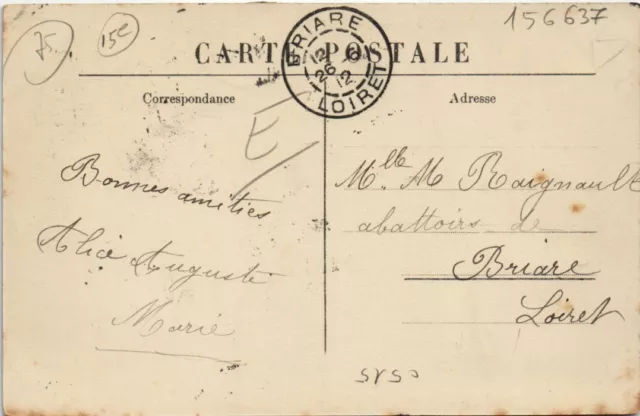 75
15€
156637
CARTE POSTALE
BRIARE
12
26 6
12
LOIRET
Correspondance
Adresse
E
Bonnes amitiés
Alice Auguste
Marie
Mlle M Raignault
abattoirs de
Briare
Loiret